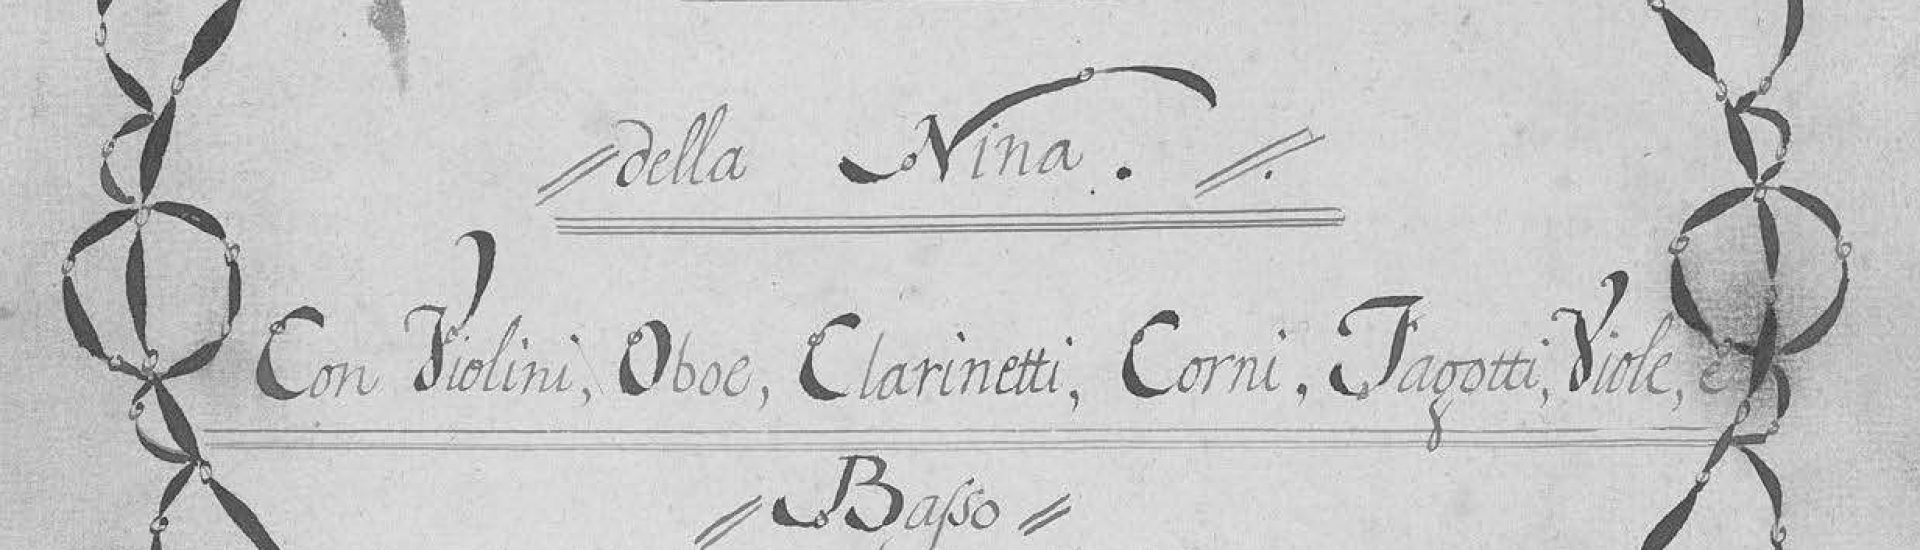 della Nina.
Con Violini, Oboe, Clarinetti, Corni, Fagotti, Viole, e
Baſso